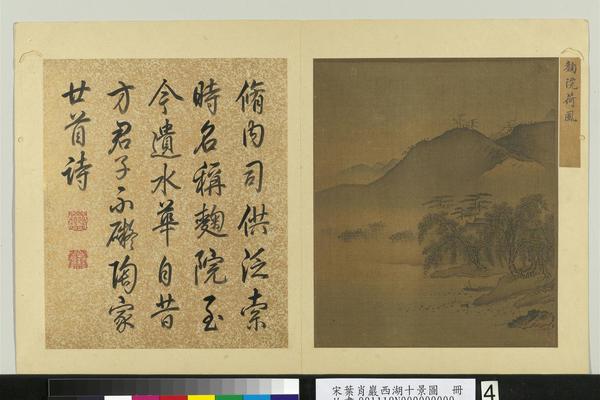 麯院荷風
脩内司供泛索
時名稱麯院至
今遺水華自昔
方君子不礙陶家
廿首詩
宋葉肖巖西湖十景圖 冊
4